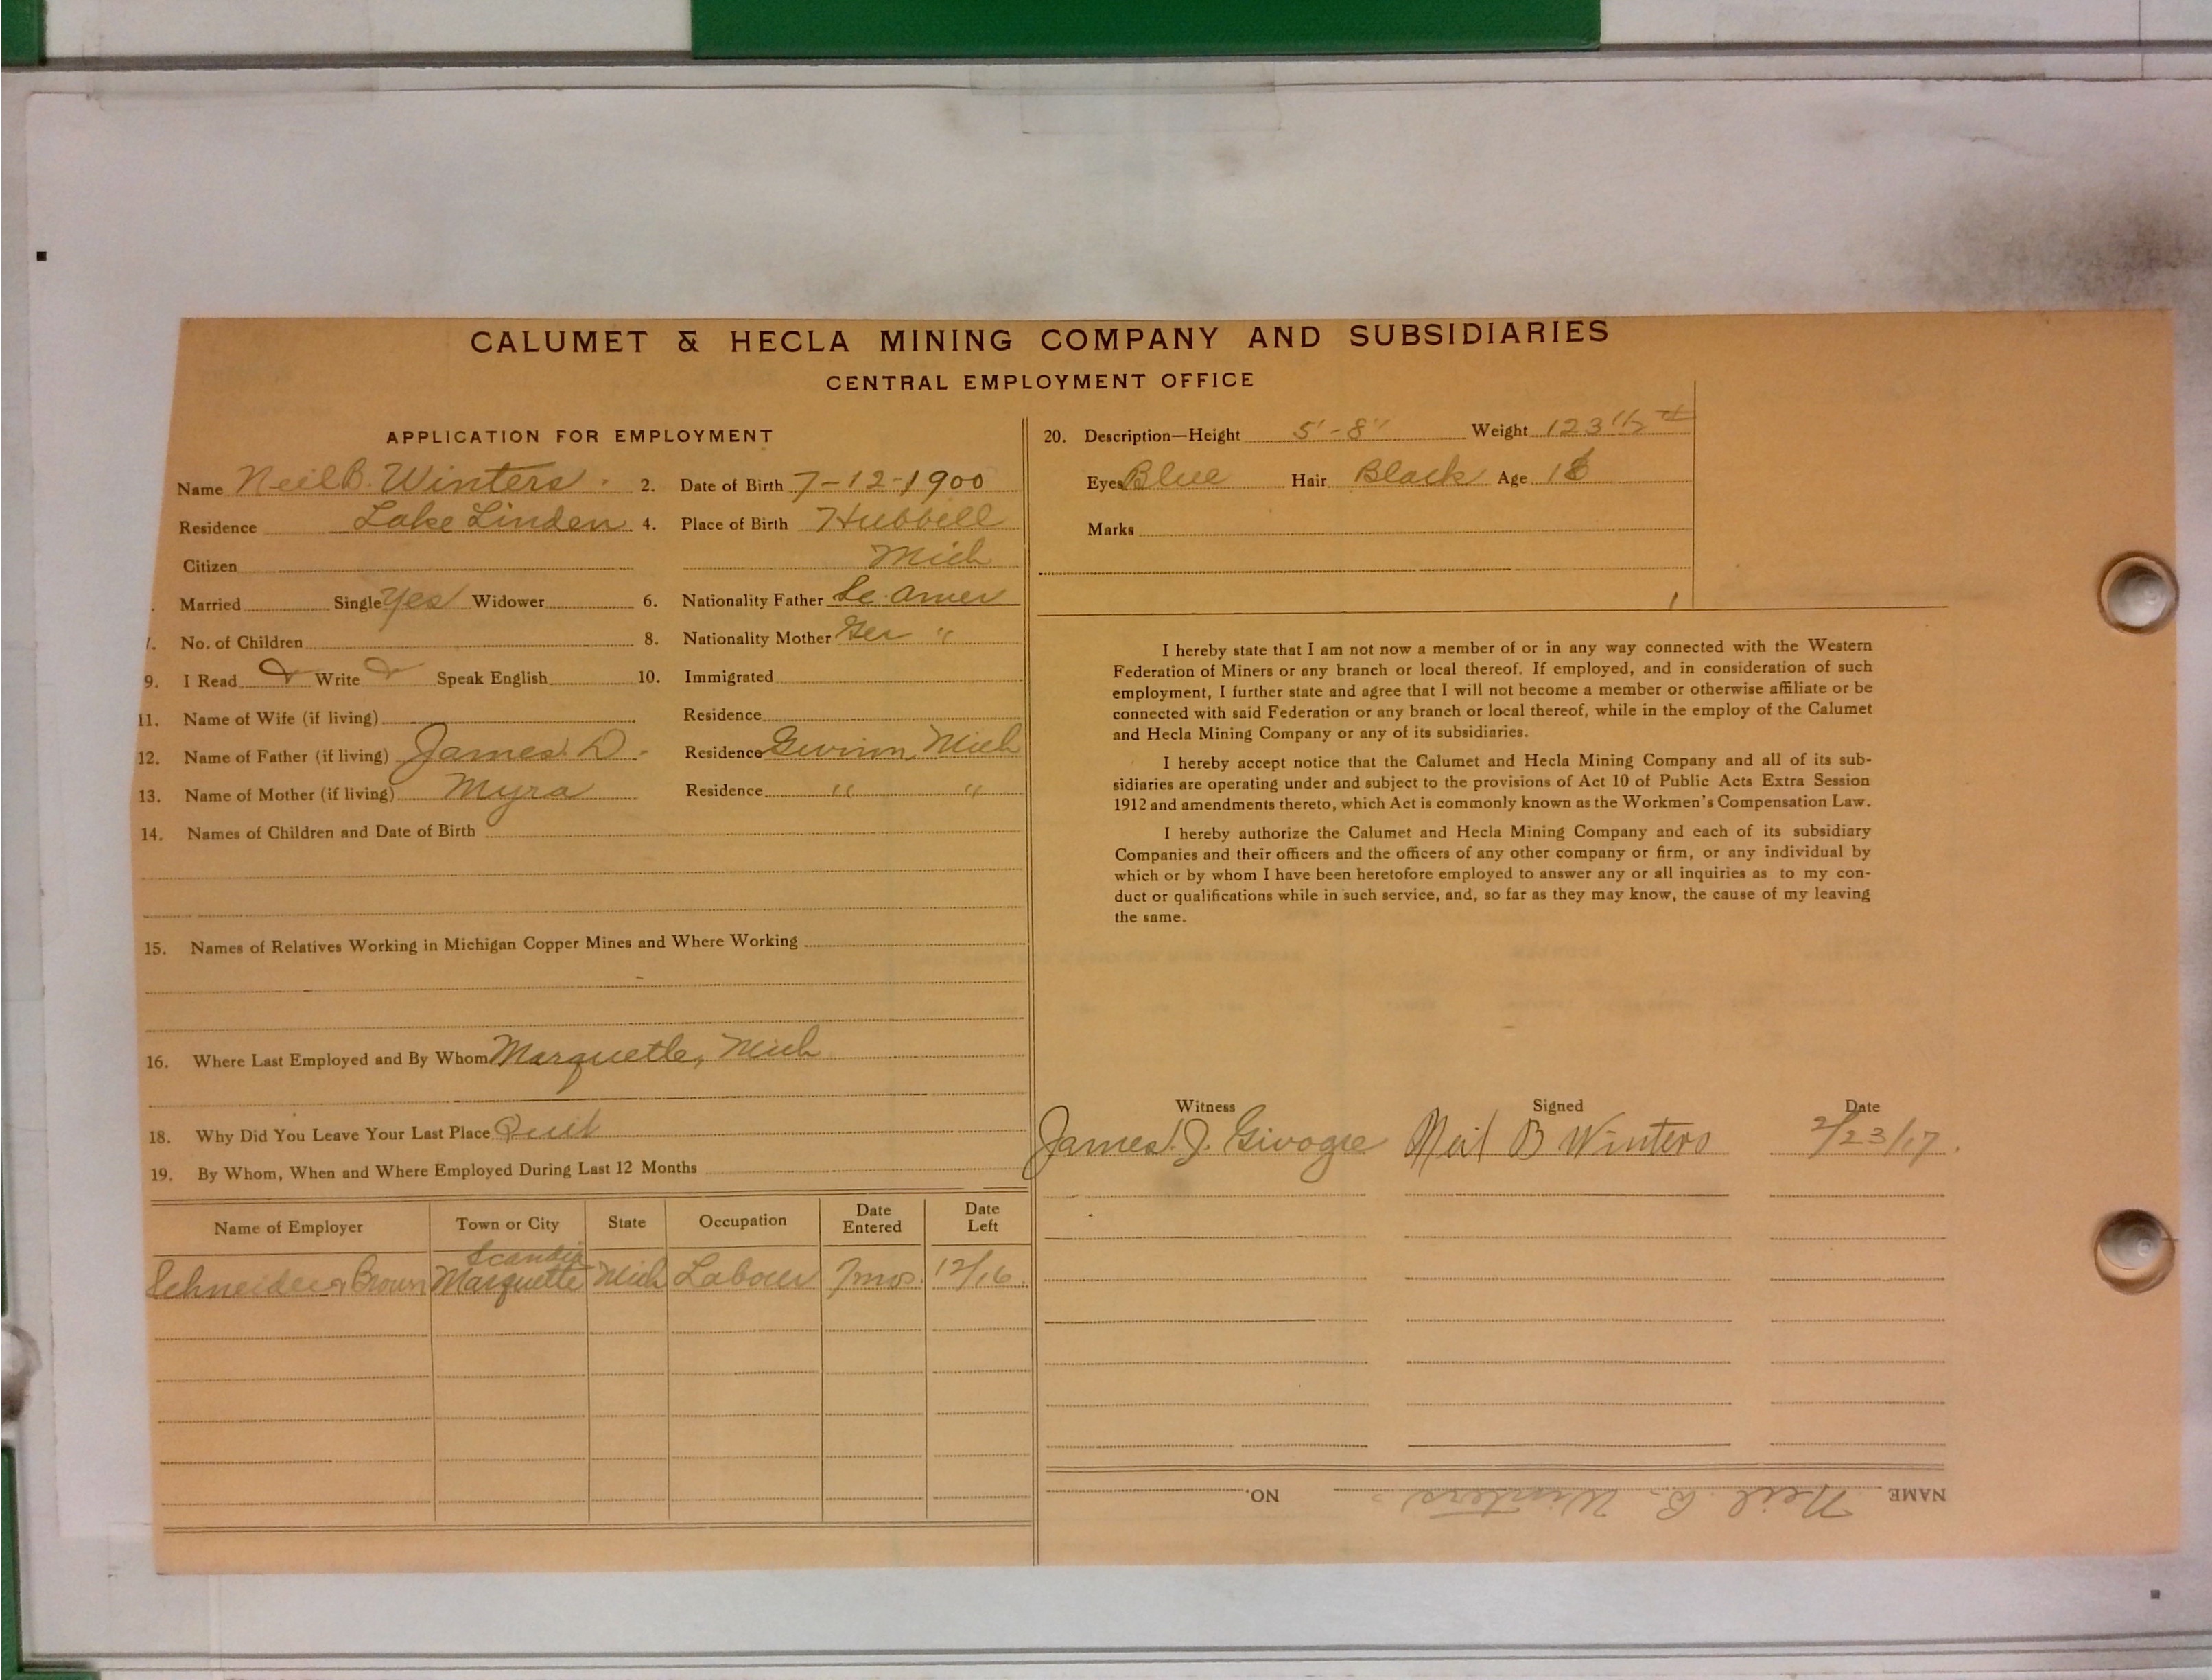 CALUMET & HECLA MINING COMPANY AND SUBSIDIARIES
CENTRAL EMPLOYMENT OFFICE
APPLICATION FOR EMPLOYMENT
Name Neil B. Winters. 2. Date of Birth 7-12-1900
Residence Lake Linden 4. Place of Birth Hubbell
Citizen Mich
Married Single Yes Widower 6. Nationality Father Sc. Amer
7. No. of Children 8. Nationality Mother Ger "
9. I Read Write Speak English 10. Immigrated
11. Name of Wife (if living) Residence
12. Name of Father (if living) James D. Residence Gwinn, Mich
13. Name of Mother (if living) Myra Residence " "
14. Names of Children and Date of Birth
15. Names of Relatives Working in Michigan Copper Mines and Where Working
16. Where Last Employed and By Whom Marquette, Mich
18. Why Did You Leave Your Last Place Quit
19. By Whom, When and Where Employed During Last 12 Months
Name of Employer Town or City State Occupation Date Entered Date Left
Scandia
Schneider & Brown Marquette Mich Labour 7 mos. 12/16.
20. Description—Height 5'-8" Weight 123 1/2 #
Eyes Blue Hair Black Age 
Marks
I hereby state that I am not now a member of or in any way connected with the Western
Federation of Miners or any branch or local thereof. If employed, and in consideration of such
employment, I further state and agree that I will not become a member or otherwise affiliate or be
connected with said Federation or any branch or local thereof, while in the employ of the Calumet
and Hecla Mining Company or any of its subsidiaries.
I hereby accept notice that the Calumet and Hecla Mining Company and all of its sub-
sidiaries are operating under and subject to the provisions of Act 10 of Public Acts Extra Session
1912 and amendments thereto, which Act is commonly known as the Workmen's Compensation Law.
I hereby authorize the Calumet and Hecla Mining Company and each of its subsidiary
Companies and their officers and the officers of any other company or firm, or any individual by
which or by whom I have been heretofore employed to answer any or all inquiries as to my con-
duct or qualifications while in such service, and, so far as they may know, the cause of my leaving
the same.
Witness Signed Date
James J. Givogre Neil B Winters 2/23/17.
NAME Neil B. Winters. NO.